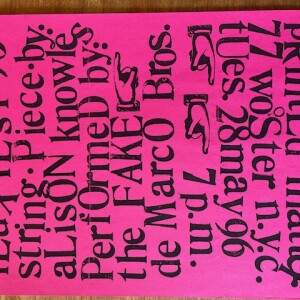 string·Piece·by:
aLisON knowles
PerfOrMeD by:
the FAKE
de MarcO Bros.
pRiNtEd
77 woSter n.y.c.
tUes. 28may96
7 p.m.